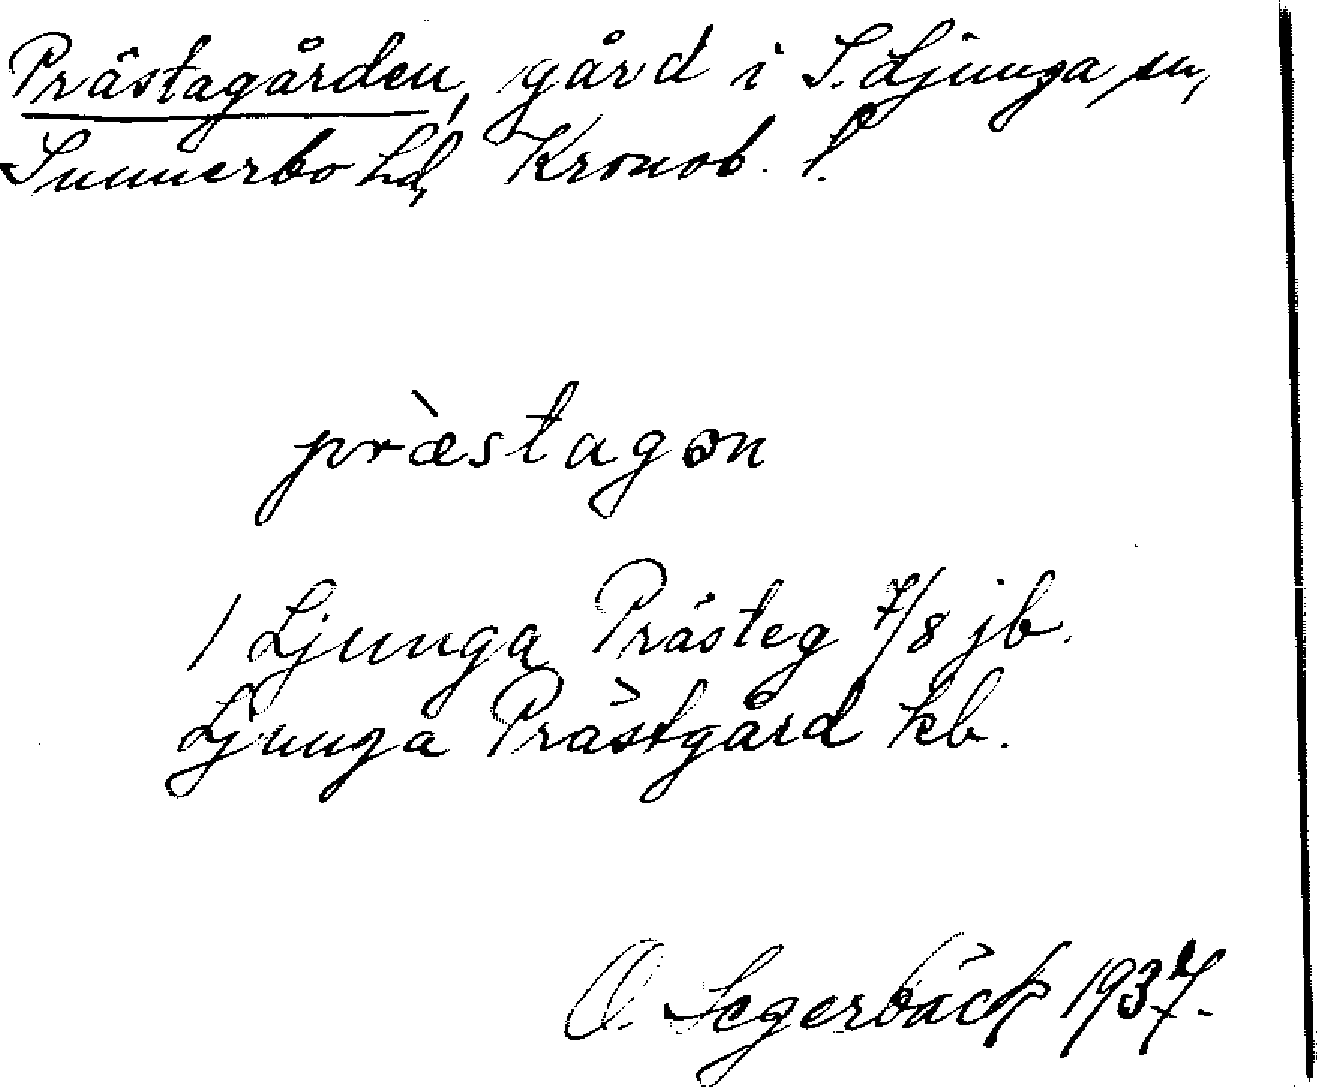 Prästagården, gård i S. Ljunga sn,
Sunnerbo hd, Kronob. l.
prὰstagən
1 Ljunga Prästeg 7/8 jb.
Ljunga Prästgård kb.
O. Segerbäck 1937.